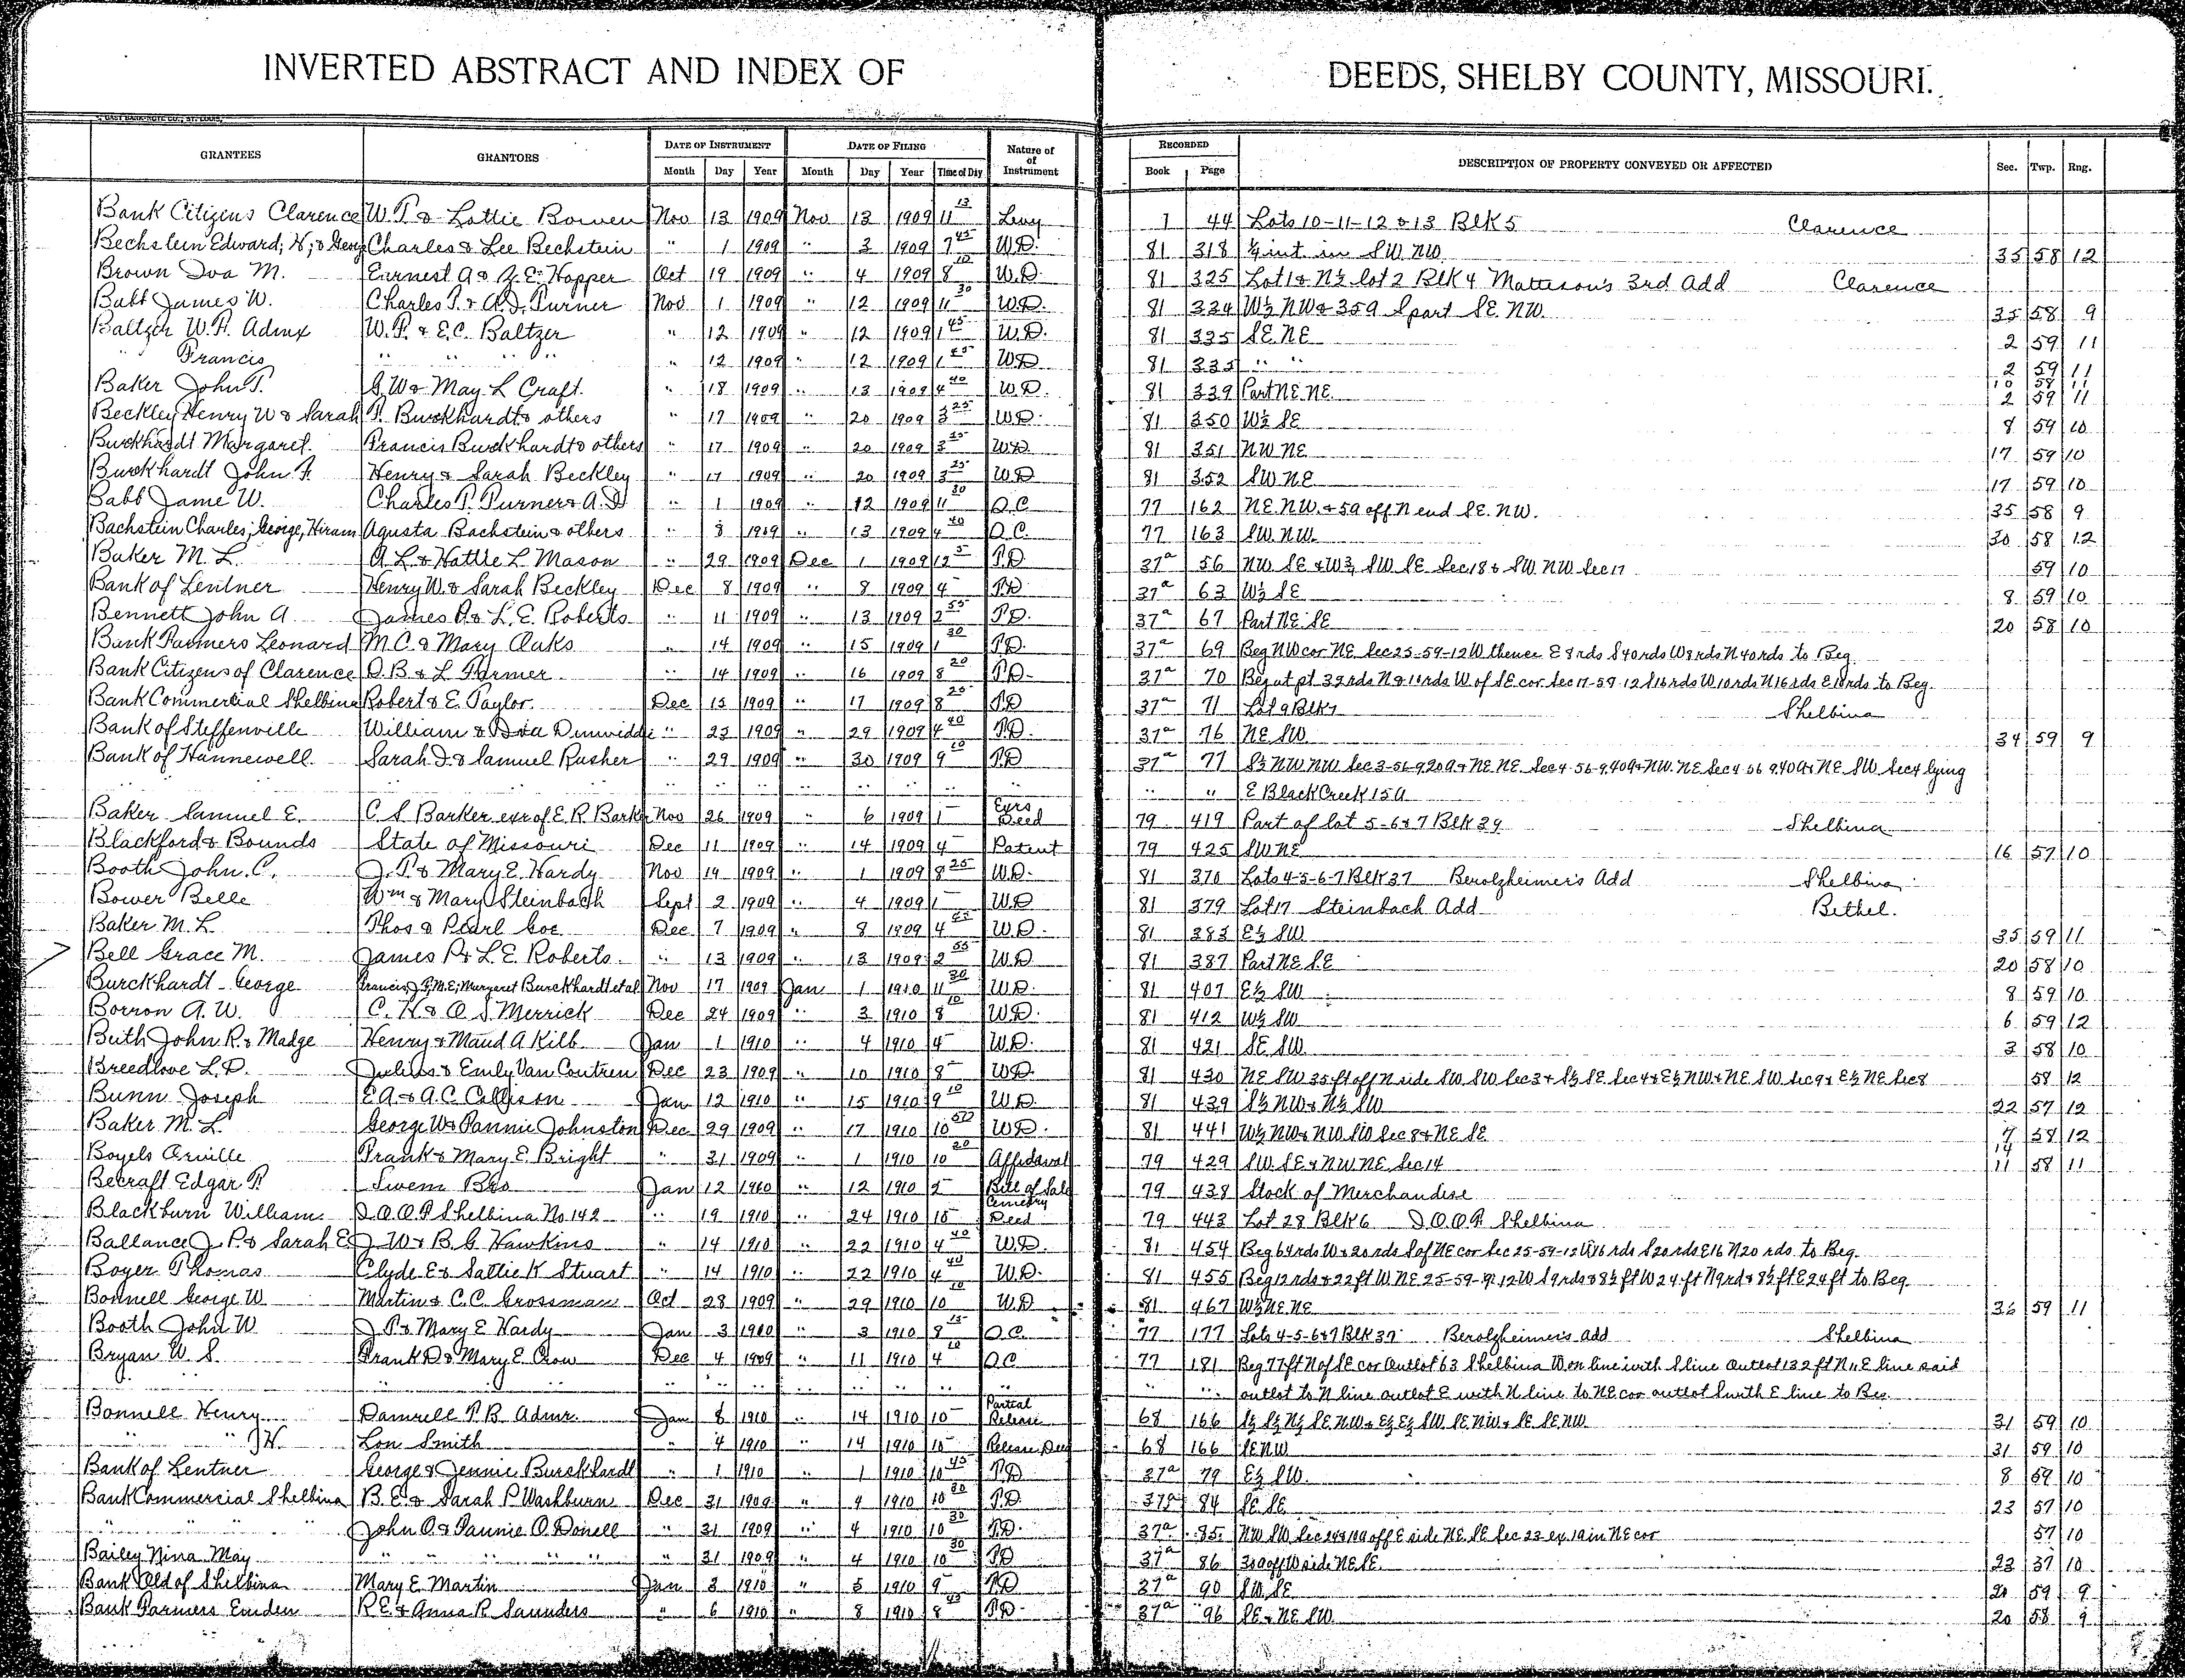 INVERTED ABSTRACT AND INDEX OF DEEDS, SHELBY COUNTY, MISSOURI.
GRANTEES GRANTORS DATE OF INSTRUMENT DATE OF FILING Nature of of Instrument RECORDED DESCRIPTION OF PROPERTY CONVEYED OR AFFECTED Sec. Twp. Rng.
Month Day Year Month Day Year Time of Day Book Page
Bank Citizens Clarence W.T. & Lottie Bowen Nov 13 1909 Nov 13 1909 11 13 Levy 1 44 Lots 10-11-12 & 13 Blk 5 Clarence
Bechstein Edward; H; & Georg Charles & Lee Bechstein " 1 1909 " 3 1909 7 45 W.D. 81 318 int in SW NW 35 58 12
Brown Iva M. Earnest A & Z.E. Hopper Oct 19 1909 " 4 1909 8 10 W.D. 81 325 Lot 1 & N½ lot 2 Blk 4 Mattison's 3rd Add Clarence
Babb James W. Charles T. & A.D. Turner Nov 1 1909 " 12 1909 11 30 W.D. 81 334 W½ NW & 35a S part SE NW 35 58 9
Baltzer W.P. Admx W.P. & E.C. Baltzer " 12 1909 " 12 1909 1 45 W.D. 81 335 SE NE 2 59 11
" Francis " " " " " 12 1909 " 12 1909 1 45 WD 81 335 " " 2 59 11
Baker John T. G.W & May L Craft. " 18 1909 " 13 1909 4 40 W.D. 81 339 Part NE NE 10 58 11 2 59 11
Beckley Henry W & Sarah F. Burckhardt & others " 17 1909 " 20 1909 3 25 WD. 81 350 W½ SE 8 59 10
Burkhardt Margaret. Francis Burckhardt & others " 17 1909 " 20 1909 3 25 WD. 81 351 NW NE 17 59 10
Burckhardt John F. Henry & Sarah Beckley " 17 1909 " 20 1909 3 25 WD 81 352 SW NE 17 59 10
Babb Jame W. Charles T. Turner & A.D " 1 1909 " 12 1909 11 30 Q.C 77 162 NE NW. & 5a off N end SE. NW. 35 58 9
Bachstein Charles, George, Hiram Agusta Bachstein & others " 8 1909 " 13 1909 4 40 Q.C. 77 163 SW NW. 30 58 12
Baker M. L. A L. & Hattie L Mason " 29 1909 Dec 1 1909 12 5 T.D 37a 56 NW SE & W½ SW SE Sec 18 & SW. NW Sec 17 59 10
Bank of Lentner Henry W. & Sarah Beckley Dec 8 1909 " 8 1909 4 T.D 37a 63 W½ SE 8 59 10
Bennett John A James P. & L. E. Roberts " 11 1909 " 13 1909 2 55 T.D. 37a 67 Part NE SE 20 58 10
Bank Farmers Leonard M.C. & Mary Oaks " 14 1909 " 15 1909 1 30 T.D. 37a 69 Beg NW cor NE Sec 25-59-12 W thence E 8 rds S 40 rds W 8 rds N 40 rds to Beg
Bank Citizens of Clarence O.B & L Farmer " 14 1909 " 16 1909 8 20 T.D. 37a 70 Beg at pt 32 rds N & 10 rds W of SE cor Sec 17-58-12 S 16 rds W 10 rds N 16 rds E 10 rds to Beg.
Bank Commercial Shelbina Robert & E. Taylor Dec 15 1909 " 17 1909 8 25 T.D 37a 71 Lot 9 Blk 7 Shelbina
Bank of Steffenville William & Ida Dinwiddie " 23 1909 " 29 1909 4 40 T.D. 37a 76 NE SW 34 59 9
Bank of Hannewell. Sarah J. & Samuel Rusher " 29 1909 " 30 1909 9 10 T.D 37a 77 S½ NW NW Sec 3-56-9, 20a & NE NE Sec 4-56-9, 40a & NW. NE Sec 4-56 9, 40a & NE SW Sec 4 lying
" " " " " " " " " E Black Creek 15 A
Baker Samuel E. C S Barker exr of E R Bark Nov 26 1909 " 6 1909 1 Exrs Deed 79 419 Part of lot 5-6 & 7 Blk 39 Shelbina
Blackford & Bounds State of Missouri Dec 11 1909 " 14 1909 4 Patent 79 425 SW NE 16 57 10
Booth John. C. J. P. & Mary E. Hardy Nov 19 1909 " 1 1909 8 25 W.D. 81 370 Lots 4-5-6-7 Blk 37 Berolzheimer's Add Shelbina
Bower Belle Wm & Mary Steinbach Sept 2 1909 " 4 1909 1 W.D 81 379 Lot 17 Steinbach Add Bethel.
Baker M. L. Thos & Pearl Coe Dec 7 1909 " 8 1909 4 45 W.D. 81 383 E½ SW 35 59 11
Bell Grace M. James P. & L. E. Roberts " 13 1909 " 13 1909 2 55 W.D 81 387 Part NE SE 20 58 10
Burckhardt George Francis J; M.E; Margaret Burckhardt et al Nov 17 1909 Jan 1 1910 11 30 W.D. 81 407 E½ SW 8 59 10
Borron A. W. C. H. & O S. Merrick Dec 24 1909 " 3 1910 8 10 W.D. 81 412 W½ SW 6 59 12
Buth John R. & Madge Henry & Maud A Kilb Jan 1 1910 " 4 1910 4 W.D. 81 421 SE SW. 3 58 10
Breedlove L.D. Julius & Emily Van Coutren Dec 23 1909 " 10 1910 8 WD. 81 430 NE SW 35 ft off N side SW SW Sec 3 & S½ SE Sec 4 & E½ NW & NE SW Sec 9 & E½ NE Sec 8 58 12
Bunn Joseph E A. & A.C Collison Jan 12 1910 " 15 1910 9 10 W.D. 81 439 S½ NW & N½ SW 22 57 12
Baker M. L. George W & Fannie Johnston Dec 29 1909 " 17 1910 10 50 WD. 81 441 W½ NW & NW SW Sec 8 & NE SE 7 58 12
Boyels Orville Frank & Mary E. Bright " 31 1909 " 1 1910 10 20 Affidavat 79 429 SW. SE & NW NE Sec 14 11 58 11
Becraft Edgar P. Swem Bro Jan 12 1910 " 12 1910 2 Bill of Sale 79 438 Stock of Merchandise
Blackburn William I.O.O.F Shelbina No 142 " 19 1910 " 24 1910 10 Cemetry Deed 79 443 Lot 28 Blk 6 I.O.O.F. Shelbina
Ballance J. P. & Sarah E J. W. & B. G Hawkins " 14 1910 " 22 1910 4 40 W.D. 81 454 Beg 64 rds W & 20 rds S of NE cor Sec 25-59-12 W 16 rds S 20 rds E 16 N 20 rds to Beg.
Boyer Thomas Clyde E & Sattie K Stuart " 14 1910 " 22 1910 4 40 W.D. 81 455 Beg 12 rds & 22 ft W. NE 25-59-12 W S 9 rds & 8½ ft W 24 ft N 9 rds & 8½ ft E 24 ft to Beg.
Bonnell George W Martin & C.C. Crossman Oct 28 1909 " 29 1910 10 10 W.D 81 467 W½ NE NE 36 59 11
Booth John W J P. & Mary E Hardy Jan 3 1910 " 3 1910 8 15 Q.C. 77 177 Lots 4-5-6 & 7 Blk 37 Berolzheimer's Add Shelbina
Bryan W. S. Frank D & Mary E. Crow Dec 4 1909 " 11 1910 4 10 QC 77 181 Beg 77 ft N of SE cor Outlot 63 Shelbina W on line with S line Outlot 132 ft N " E line said
" " " " " " " " " outlot to N line outlot E with N line to NE cor outlot S with E line to Beg.
Bonnell Henry Damrell T. B. Admr. Jan 8 1910 " 14 1910 10 Partial Release 68 166 S½ S½ N½ SE NW & E½ E½ SW SE NW & SE SE NW 31 59 10
" " J H. Lon Smith " 4 1910 " 14 1910 10 Release Deed 68 166 SE NW 31 59 10
Bank of Lentner George & Jennie Burckhardt " 1 1910 " 1 1910 10 45 T.D 37a 79 E½ SW. 8 59 10
Bank Commercial Shelbina B. E. & Sarah P Washburn Dec 31 1909 " 4 1910 10 30 T.D 37a 84 SE SE 23 57 10
" " " John O. & Fannie O. Donell " 31 1909 " 4 1910 10 30 T.D. 37a 85 NW SW Sec 24 & 10a off E side NE SE Sec 23 ex 1a in NE cor 57 10
Bailey Nina May " " " " " " 31 1909 " 4 1910 10 30 T.D 37a 86 30a off W side NE SE 23 57 10
Bank Old of Shelbina Mary E. Martin Jan 3 1910 " 5 1910 9 T.D 37a 90 SW SE 20 59 9
Bank Farmers Emden R E. & Anna R Saunders " 6 1910 " 8 1910 8 45 T.D. 37a 96 SE & NE SW 20 58 9